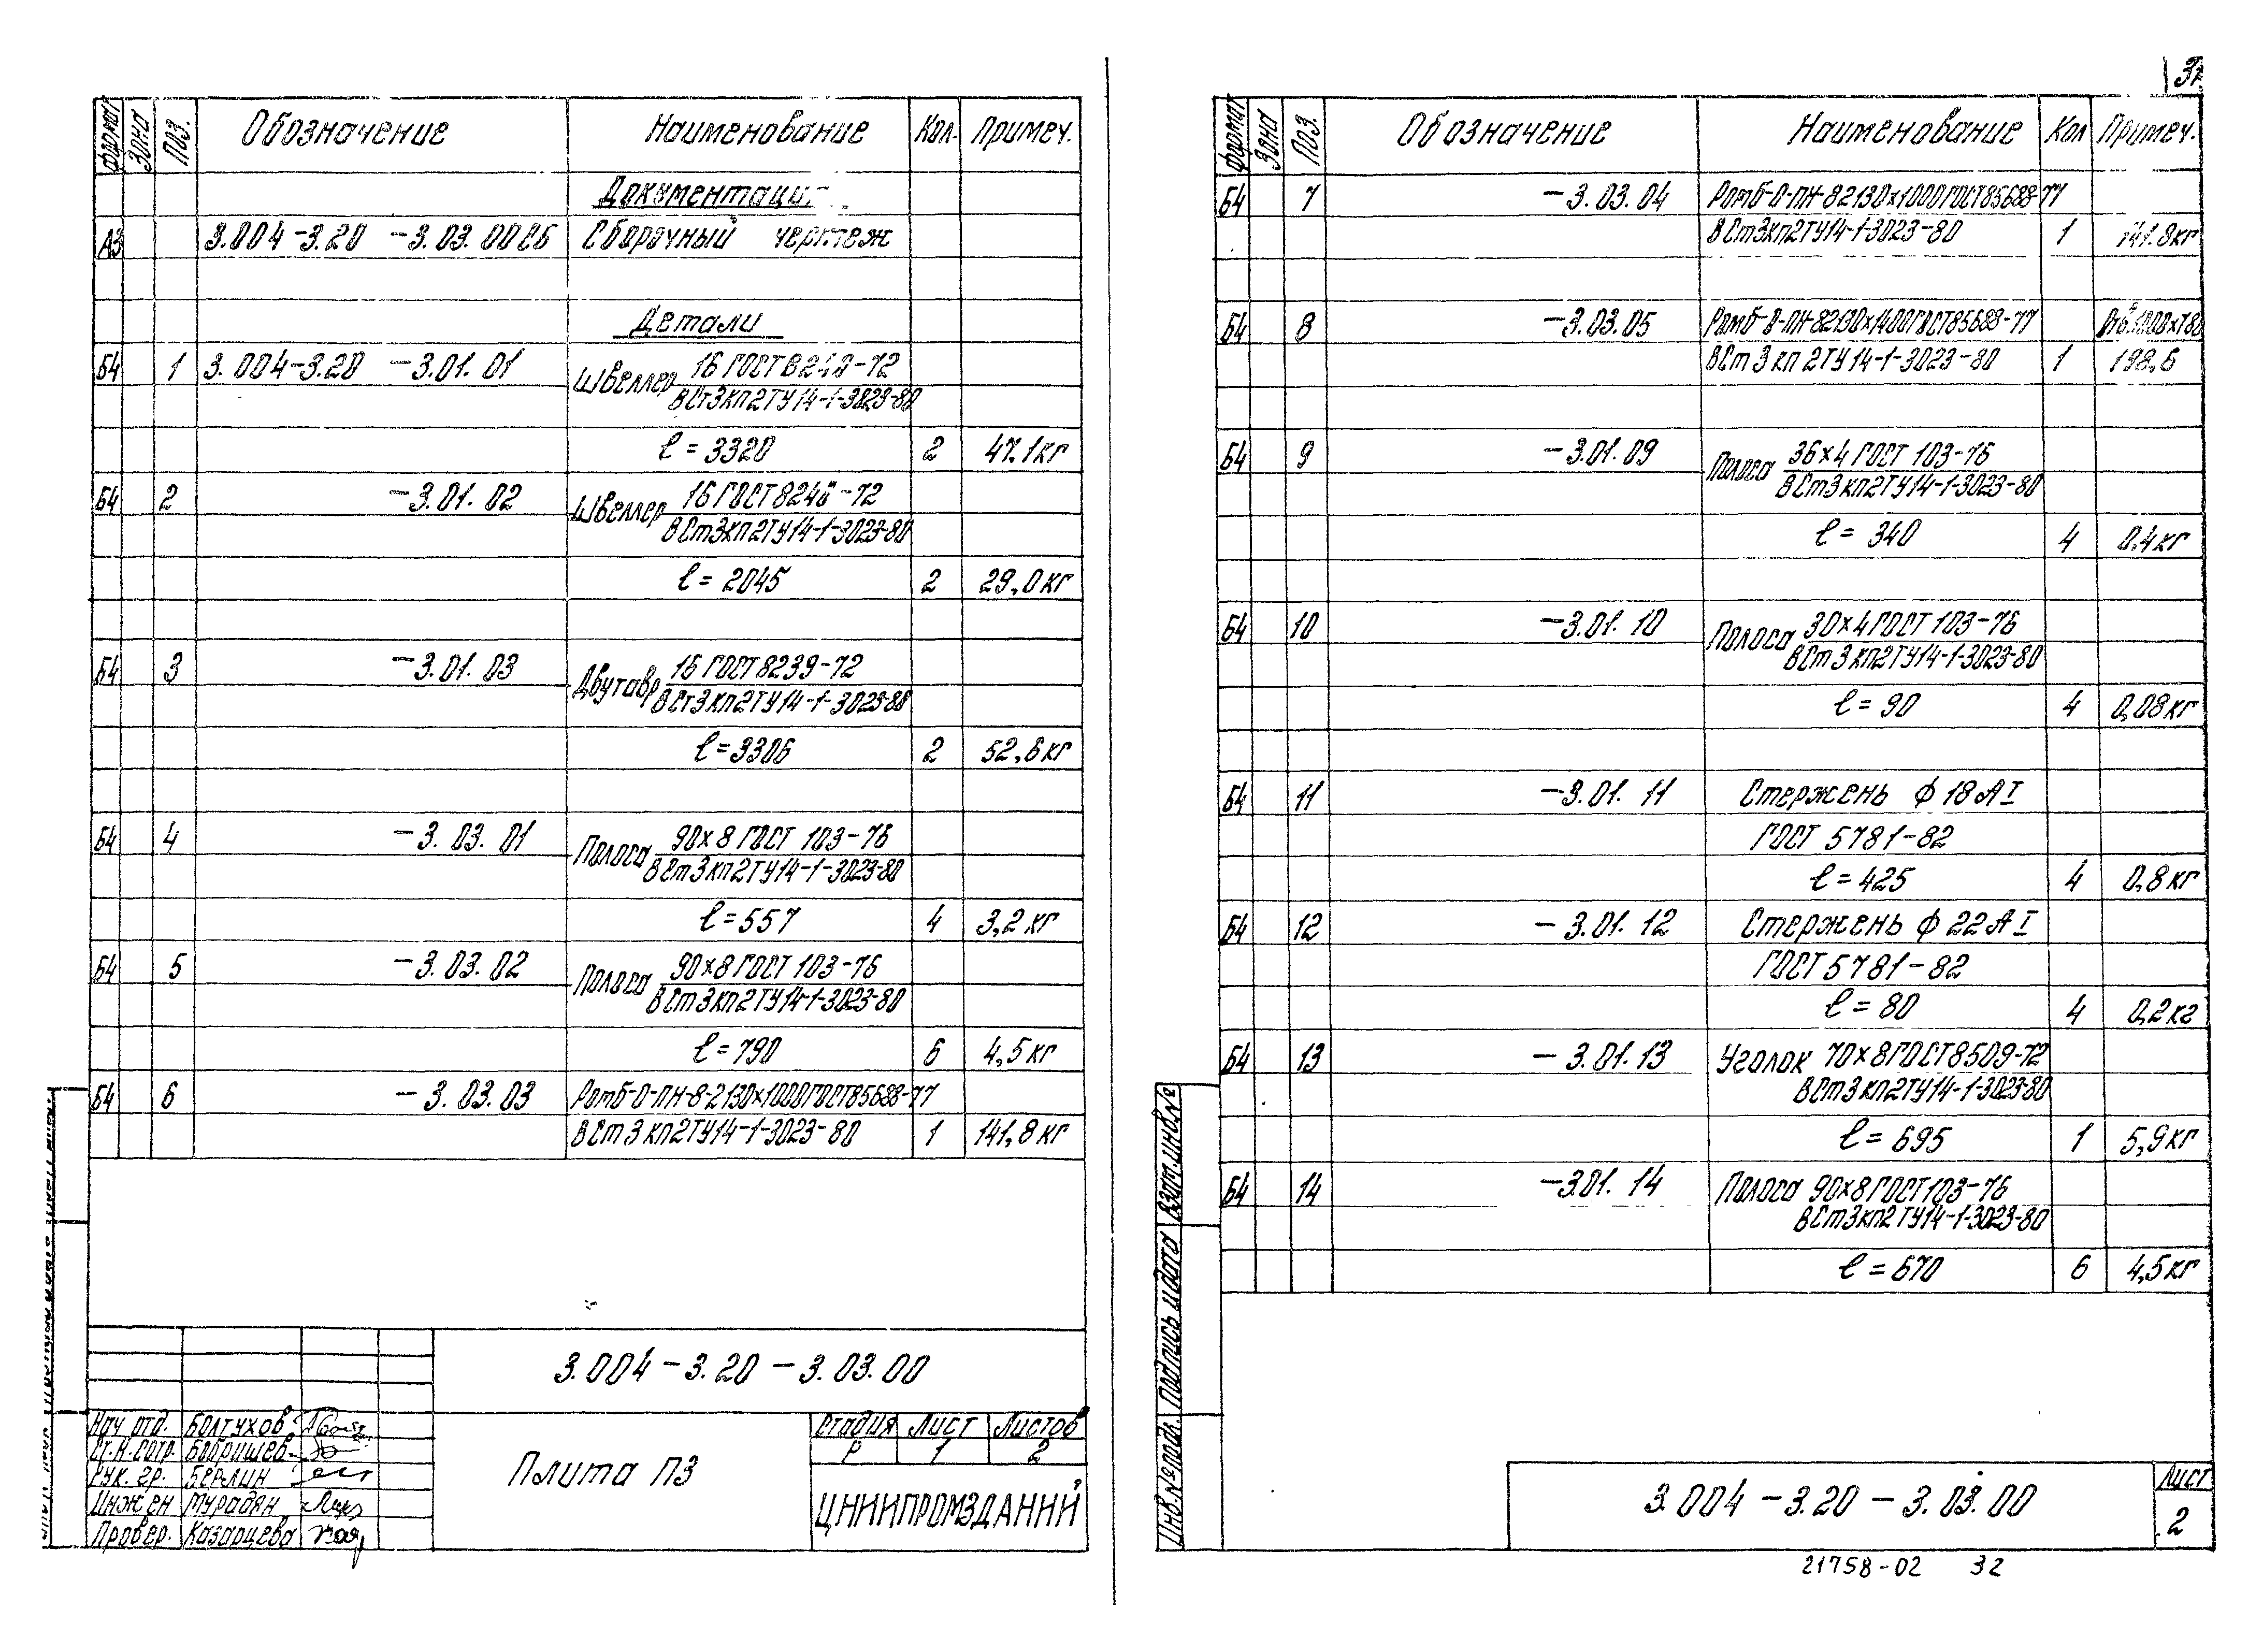 Формат Зона Поз. Обозначение Наименование Кол. Примеч.
Документаци
А3 3.004-3.20 -3.03.00СБ Сборочный чертеж
Детали
Б4 1 3.004-3.20 -3.01.01 Швеллер 16 ГОСТ 8240-72
ВСт3кп2ТУ14-1-3023-80
ℓ=3320 2 47.1кг
Б4 2 -3.01.02 Швеллер 16 ГОСТ 8240-72
ВСт3кп2ТУ14-1-3023-80
ℓ=2045 2 29,0кг
Б4 3 -3.01.03 Двутавр 16 ГОСТ 8239-72
ВСт3кп2ТУ14-1-3023-80
ℓ=3306 2 52,6кг
Б4 4 -3.03.01 Полоса 90х8 ГОСТ 103-76
ВСт3кп2ТУ14-1-3023-80
ℓ=557 4 3,2кг
Б4 5 -3.03.02 Полоса 90х8 ГОСТ 103-76
ВСт3кп2ТУ14-1-3023-80
ℓ=790 6 4,5кг
Б4 6 -3.03.03 Ромб-О-ПН-8-2130х1000ГОСТ85688-77
ВСт3кп2ТУ14-1-3023-80 1 141,8кг
3.004-3.20-3.03.00
Нач.отд. Болтухов
Ст.н.сотр. Бобришев
Рук. гр. Берлин
Инжен Мурадян
Провер. Казарцева
Плита П3
Стадия Лист Листов
Р 1 2
ЦНИИПРОМЗДАНИЙ
31
Формат Зона Поз. Обозначение Наименование Кол Примеч.
Б4 7 -3.03.04 Ромб-О-ПН-8 2130х1000ГОСТ85688-77
ВСт3кп2ТУ14-1-3023-80 1 141.8кг
Б4 8 -3.03.05 Ромб-О-ПН-8 2130х1400ГОСТ85688-77
ВСт3кп2ТУ14-1-3023-80 1 198,6
Б4 9 -3.01.09 Полоса 36х4 ГОСТ 103-76
ВСт3кп2ТУ14-1-3023-80
ℓ=340 4 0,4кг
Б4 10 -3.01.10 Полоса 30х4 ГОСТ 103-76
ВСт3кп2ТУ14-1-3023-80
ℓ=90 4 0,08кг
Б4 11 -3.01.11 Стержень ф18АI
ГОСТ 5781-82
ℓ=425 4 0,8кг
Б4 12 -3.01.12 Стержень ф22АI
ГОСТ 5781-82
ℓ=80 4 0,2кг
Б4 13 -3.01.13 Уголок 70х8ГОСТ8509-72
ВСт3кп2ТУ14-1-3023-80
ℓ=695 1 5,9кг
Б4 14 -3.01.14 Полоса 90х8ГОСТ103-76
ВСт3кп2ТУ14-1-3023-80
ℓ=670 6 4,5кг
Инв.№подл. Подпись и дата Взам.инв.№
3.004-3.20-3.03.00
Лист
2
21758-02 32